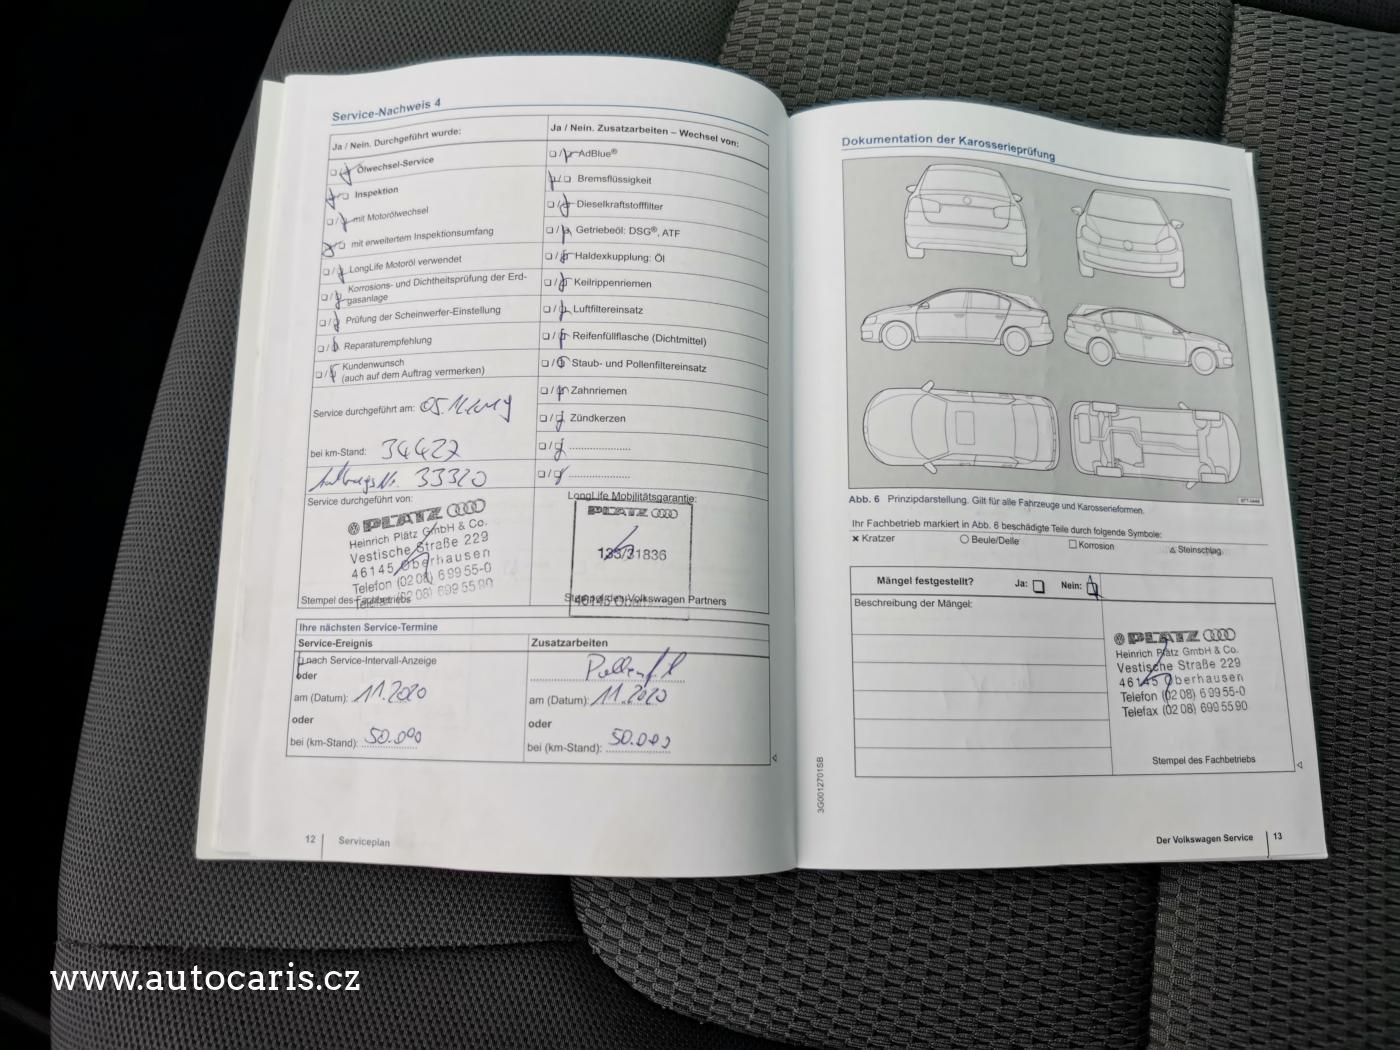 Service-Nachweis 4
Ja / Nein. Durchgeführt wurde:
Ölwechsel-Service
Inspektion
mit Motorölwechsel
mit erweitertem Inspektionsumfang
LongLife Motoröl verwendet
Korrosions- und Dichtheitsprüfung der Erd-
gasanlage
Prüfung der Scheinwerfer-Einstellung
Reparaturempfehlung
Kundenwunsch
(auch auf dem Auftrag vermerken)
Service durchgeführt am: 05.11.2019
bei km-Stand: 34427
Auftrags Nr. 33320
Service durchgeführt von:
PLATZ
Heinrich Platz GmbH & Co.
Vestische Straße 229
46145 Oberhausen
Telefon (02 08) 6 99 55-0
Telefax (02 08) 699 55 90
Stempel des Fachbetriebs
Ja / Nein. Zusatzarbeiten – Wechsel von:
AdBlue®
Bremsflüssigkeit
Dieselkraftstofffilter
Getriebeöl: DSG®, ATF
Haldexkupplung: Öl
Keilrippenriemen
Luftfiltereinsatz
Reifenfüllflasche (Dichtmittel)
Staub- und Pollenfiltereinsatz
Zahnriemen
Zündkerzen
LongLife Mobilitätsgarantie:
PLATZ
135/31836
46145
Stempel des Volkswagen Partners
Ihre nächsten Service-Termine
Service-Ereignis
nach Service-Intervall-Anzeige
oder
am (Datum): 11.2020
oder
bei (km-Stand): 50.000
Zusatzarbeiten
am (Datum): 11.2020
oder
bei (km-Stand): 50.000
12 Serviceplan
Dokumentation der Karosserieprüfung
Abb. 6 Prinzipdarstellung. Gilt für alle Fahrzeuge und Karosserieformen.
Ihr Fachbetrieb markiert in Abb. 6 beschädigte Teile durch folgende Symbole:
× Kratzer ○ Beule/Delle □ Korrosion △ Steinschlag
Mängel festgestellt? Ja: Nein:
Beschreibung der Mängel:
PLATZ
Heinrich Platz GmbH & Co.
Vestische Straße 229
46145 Oberhausen
Telefon (02 08) 6 99 55-0
Telefax (02 08) 699 55 90
Stempel des Fachbetriebs
3G0012701SB
Der Volkswagen Service 13
www.autocaris.cz